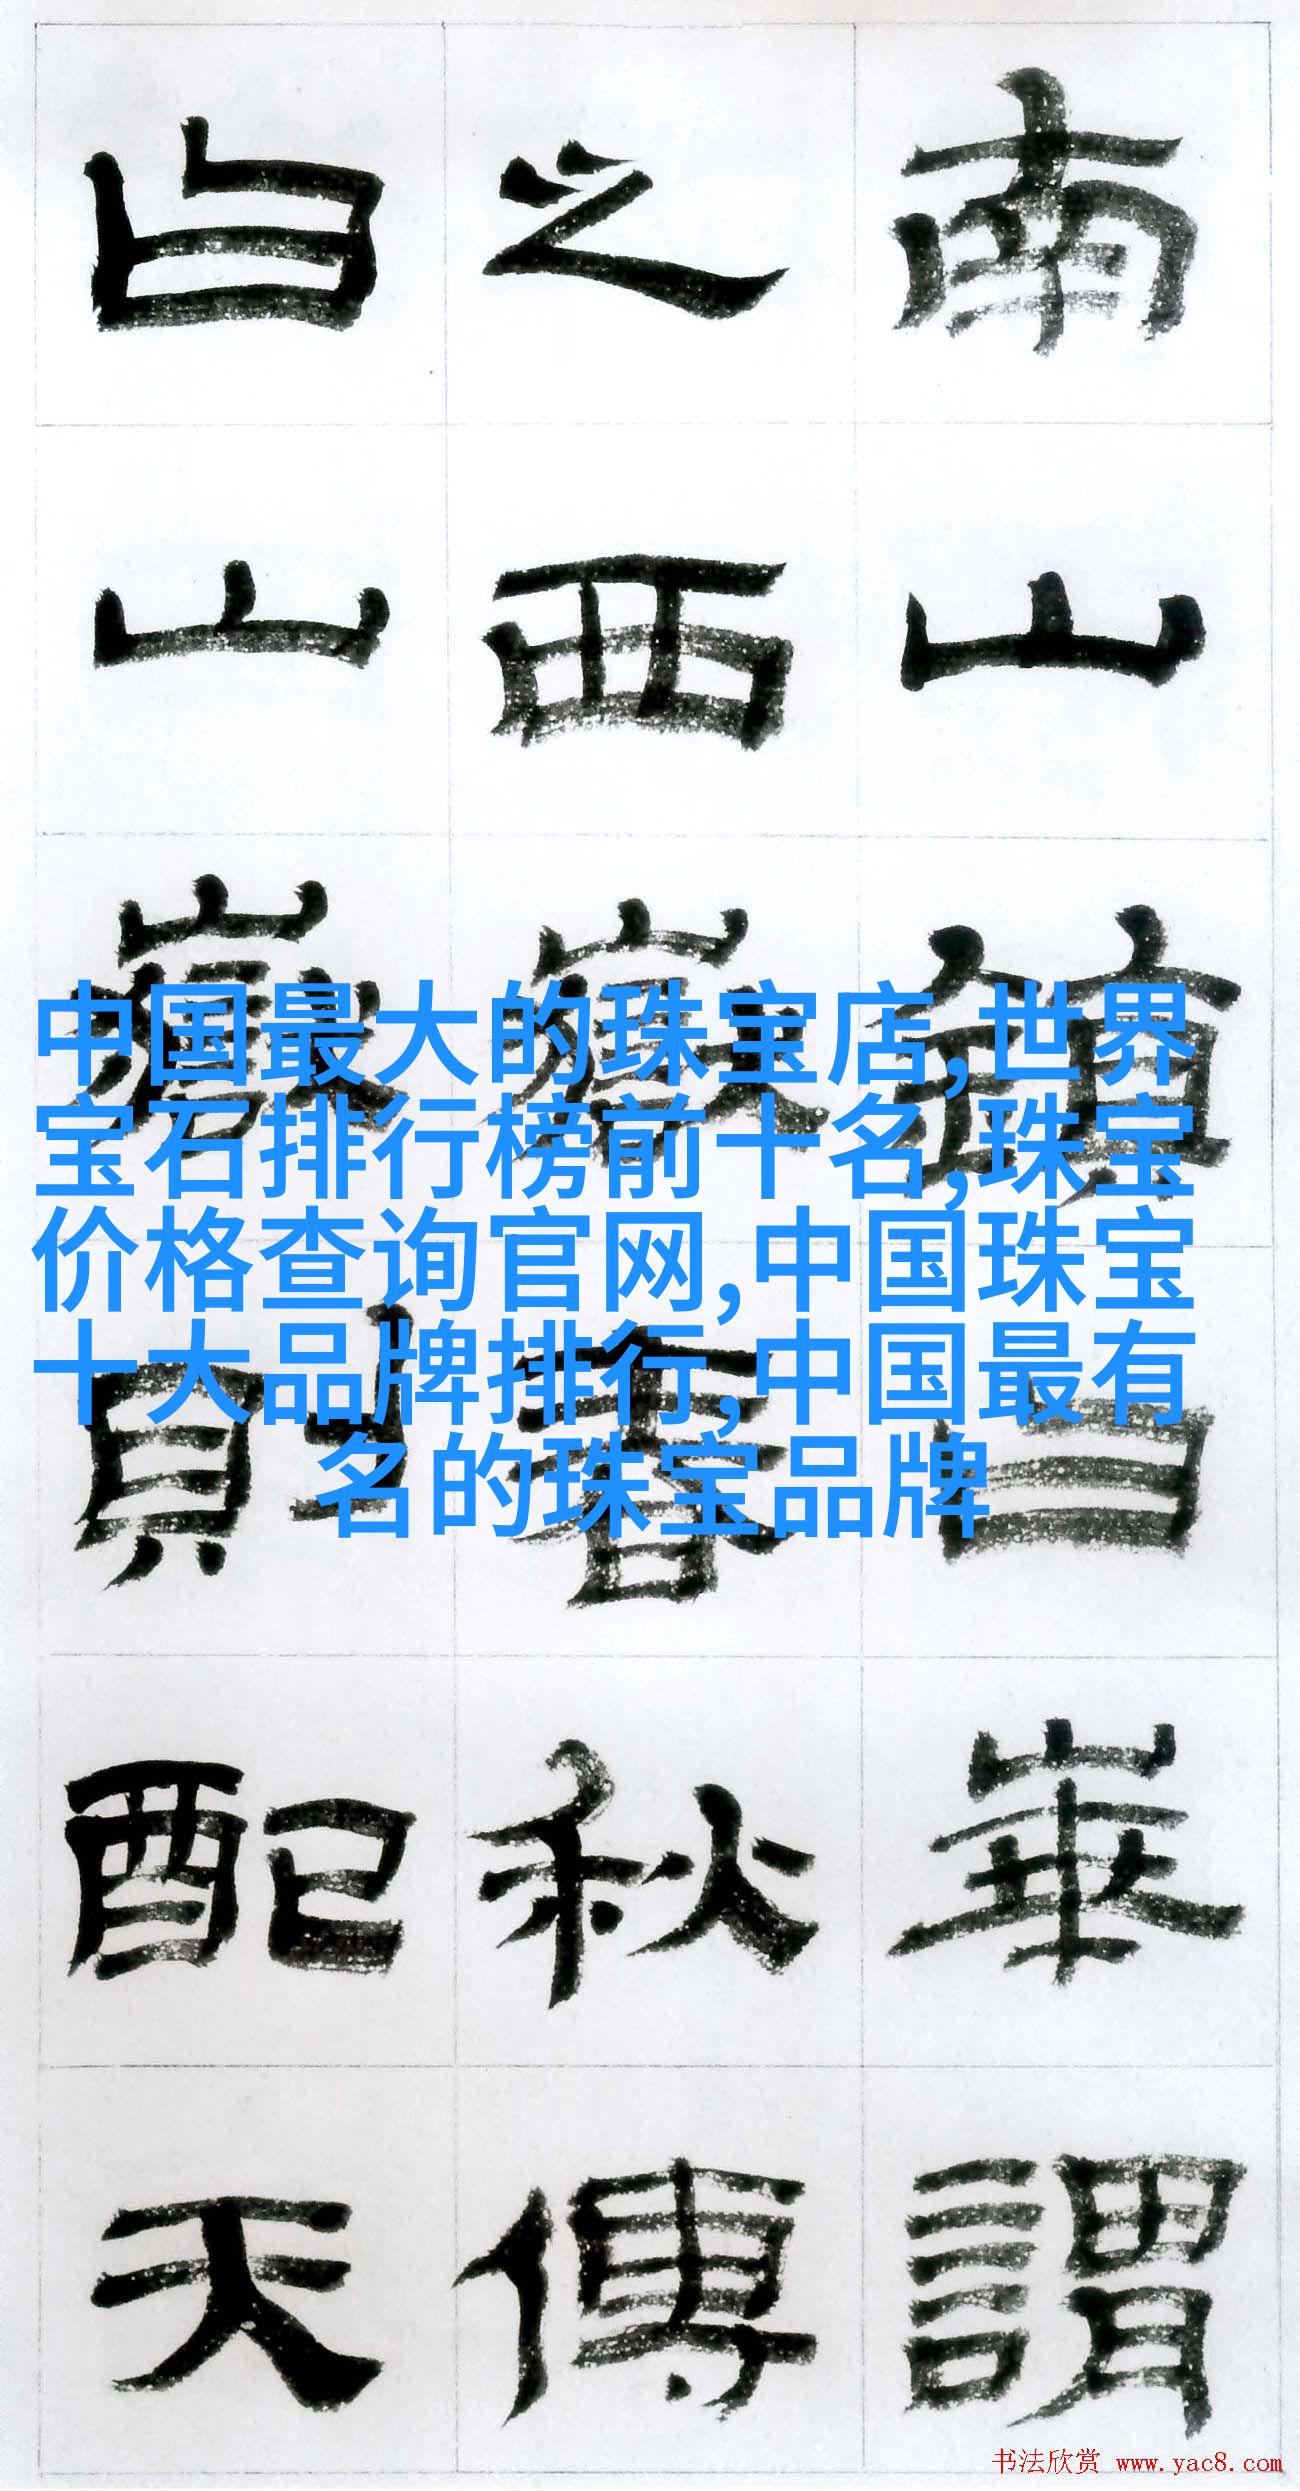 南山鎮曰華謂
之西嶽春秋傳
曰山嶽則配天
中国最大的珠宝店,世界
宝石排行榜前十名,珠宝
价格查询官网,中国珠宝
十大品牌排行,中国最有
名的珠宝品牌
书法欣赏 www.yac8.com